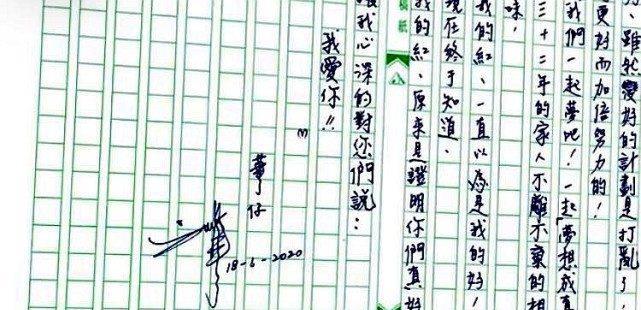 、雖然變好的計劃是打亂了，
更好而加倍努力的！
我們一起夢吧！一起「夢想成真
三十二年的家人不離不棄的相
味，
我的紅、一直以為是我的好，
現在終于知道、
我的紅、原來是證明你們真好
我心深的對您們說：
我愛你!!
董仔
18-6-2020